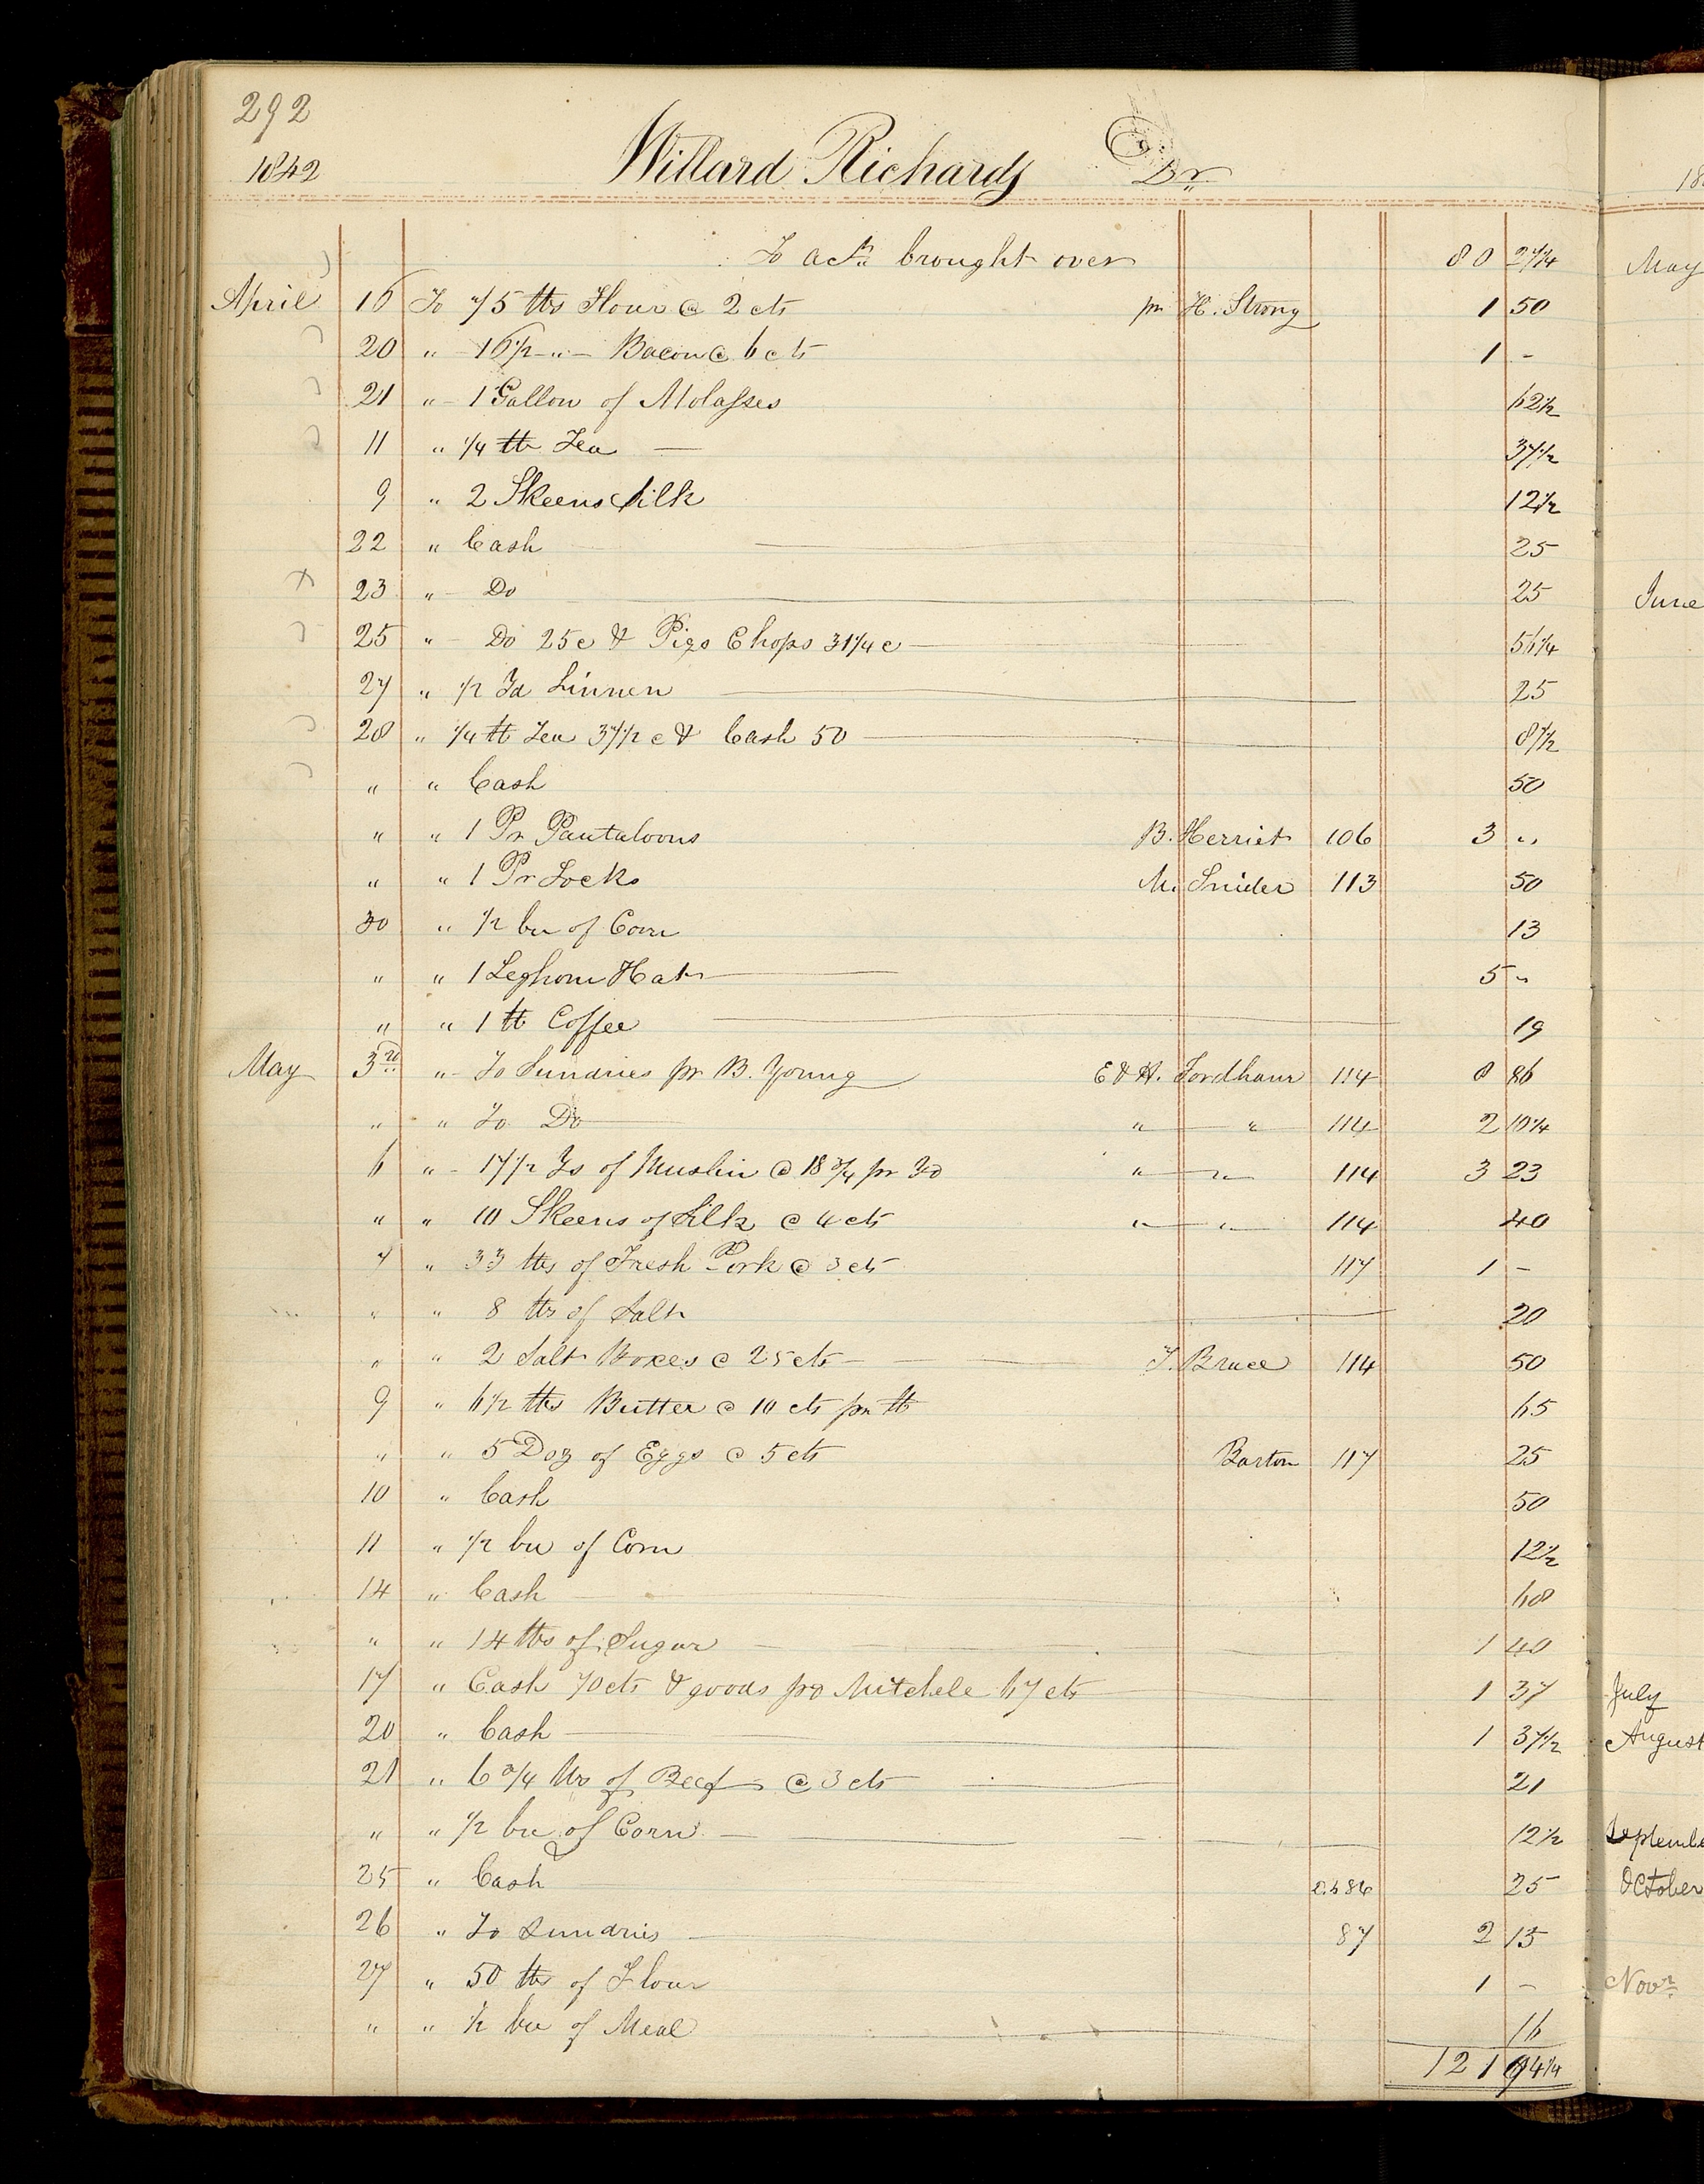 292
1842 Willard Richards Dr
To act. brought over 80 27 1/4
April 16 To 75 lbs Flour @ 2 cts pr H. Strong 1 50
20 " 16 1/2 " Bacon @ 6 cts 1 -
21 " 1 Gallon of Molasses 62 1/2
11 " 1/4 lb Tea 37 1/2
9 " 2 Skeens Silk 12 1/2
22 " Cash 25
23 " Do 25
25 " Do 25 c & Pigs Chops 31 1/4 c 56 1/4
27 " 1/2 Yd Linnen 25
28 " 1/4 lb Tea 37 1/2 c & Cash 50 87 1/2
" " Cash 50
" " 1 Pr Pantaloons B. Herriet 106 3 "
" " 1 Pr Socks M. Snider 113 50
30 " 1/2 bu of Corn 13
" " 1 Leghorn Hat 5 "
" " 1 lb Coffee 19
May 3rd " To Sundries pr B. Young E & H. Fordham 114 8 86
" " To Do " " 114 2 10 1/4
6 " 17 1/2 Yds of Muslin @ 18 3/4 pr Yd " " 114 3 23
" " 10 Skeens of Silk @ 4 cts " " 114 40
7 " 33 lbs of Fresh Pork @ 3 cts 117 1 -
" " 8 lbs of Salt 20
" " 2 Salt Boxes @ 25 cts T. Bruce 114 50
9 " 6 1/2 lbs Butter @ 10 cts pr lb 65
" " 5 Doz of Eggs @ 5 cts Barton 117 25
10 " Cash 50
11 " 1/2 bu of Corn 12 1/2
14 " Cash 68
" " 14 lbs of Sugar 1 40
17 " Cash 70 cts & goods pd Mitchele 67 cts 1 37
20 " Cash 1 37 1/2
21 " 6 3/4 lbs of Beef @ 3 cts 21
" " 1/2 bu of Corn 12 1/2
25 " Cash 25
26 " To Sundries 87 2 15
27 " 50 lbs of Flour 1 -
" " 1/2 bu of Meal 16
121 94 1/4
18
May
June
July
August
Septembe
October
Novr